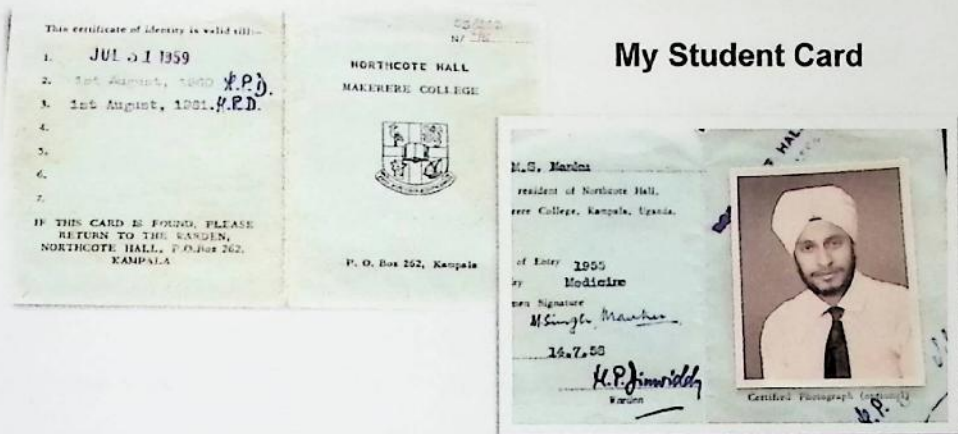 My Student Card
This certificate of identity is valid till:-
1. JUL 31 1959
2. 1st August, 1960 H.P.D.
3. 1st August, 1961. H.P.D.
4.
5.
6.
7.
IF THIS CARD IS FOUND, PLEASE
RETURN TO THE WARDEN,
NORTHCOTE HALL, P.O.Box 262,
KAMPALA
NORTHCOTE HALL
MAKERERE COLLEGE
P. O. Box 262, Kampala
M.S.
resident of Northcote Hall,
rere College, Kampala, Uganda.
of Entry 1955
Medicine
Signature
14.7.58
Warden
Certified Photograph (optional)